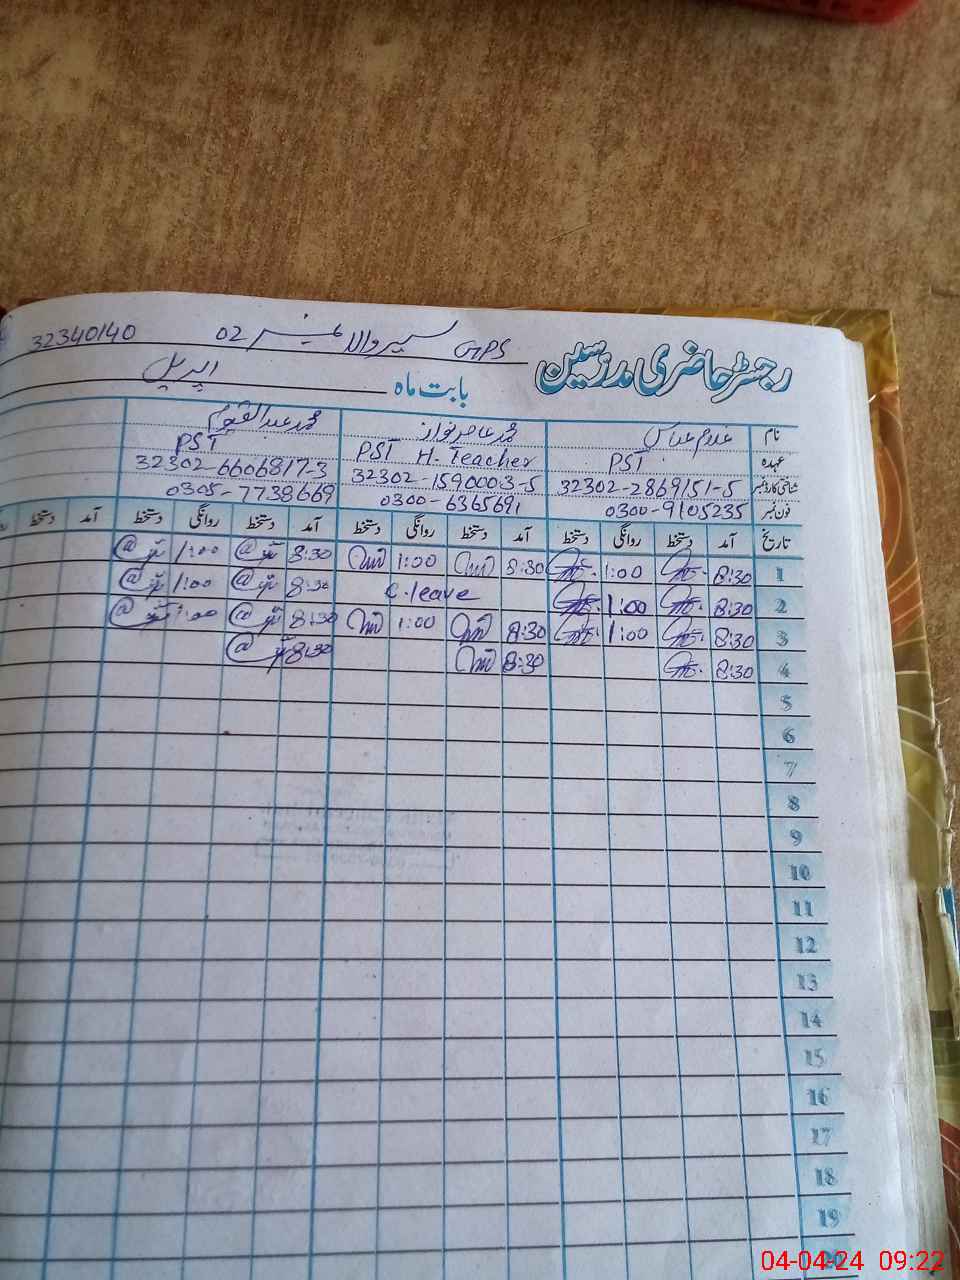 رجسٹر حاضری مدرسین GPS سمیر والا نمبر 02 32340140
بابت ماہ اپریل
نام غلام عباس محمد عامر نواز محمد عبدالقیوم
عہدہ PST PST H. Teacher PST
شناختی کارڈ نمبر 32302-2869151-5 32302-1590003-5 32302-6606817-3
فون نمبر 0300-9105235 0300-6365691 0305-7738669
تاریخ آمد دستخط روانگی دستخط آمد دستخط روانگی دستخط آمد دستخط روانگی دستخط آمد دستخط
1 8:30 1:00 8:30 1:00 8:30 1:00
2 8:30 1:00 C.leave 8:30 1:00
3 8:30 1:00 8:30 1:00 8:30 1:00
4 8:30 8:30 8:30
5
6
7
8
9
10
11
12
13
14
15
16
17
18
19
20
04-04-24 09:22